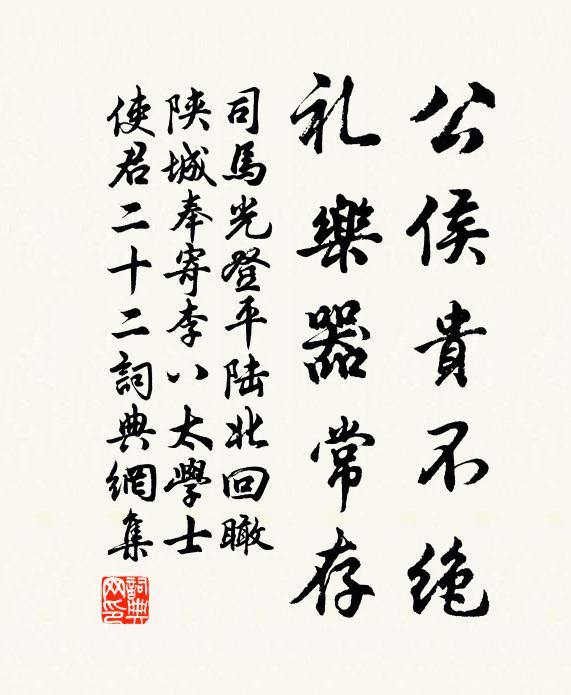 公侯貴不絶
礼樂器常存
司馬光登平陆北回瞰
陕城奉寄李八太學士
使君二十二詞典網集
詞典网印